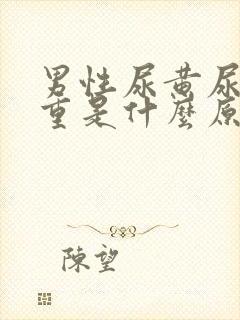 男性尿黄尿
重是什麼原
陳望